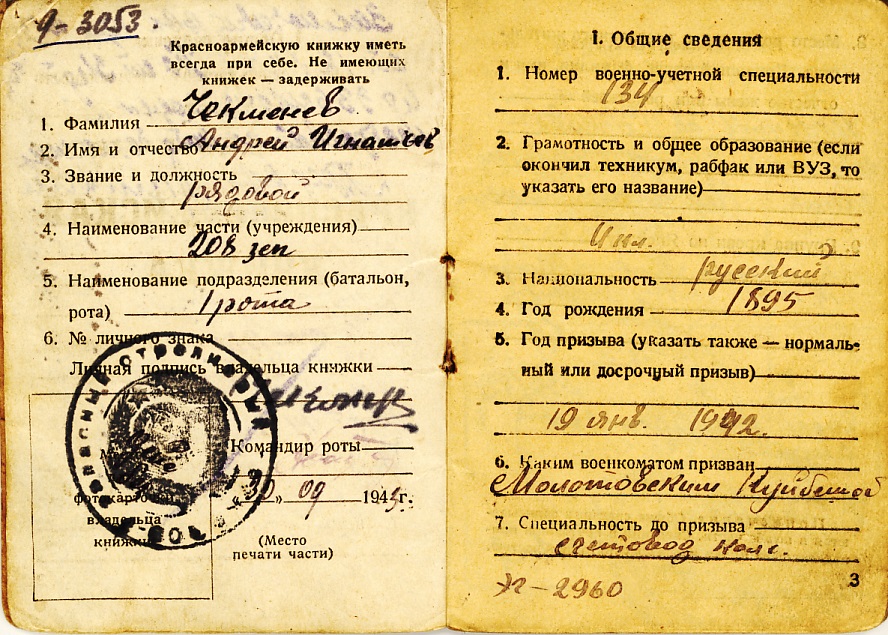 9-3053.
Красноармейскую книжку иметь
всегда при себе. Не имеющих
книжек — задерживать
1. Фамилия Чекменев
2. Имя и отчество Андрей Игнатьев
3. Звание и должность
рядовой
4. Наименование части (учреждения)
208 зсп
5. Наименование подразделения (батальон,
рота) 1 рота
6. № личного знака
Личная подпись владельца книжки
Командир роты
"30" 09 194 г.
фотокарточки
владельца
книжки
(Место
печати части)
запасный стрелковый
I. Общие сведения
1. Номер военно-учетной специальности
134
2. Грамотность и общее образование (если
окончил техникум, рабфак или ВУЗ, то
указать его название)
4 кл.
3. Национальность русский
4. Год рождения 1895
5. Год призыва (указать также — нормаль-
ный или досрочный призыв)
19 янв. 1942.
6. Каким военкоматом призван
Молотовским Куйбышев
7. Специальность до призыва
счетовод колх.
2960
3